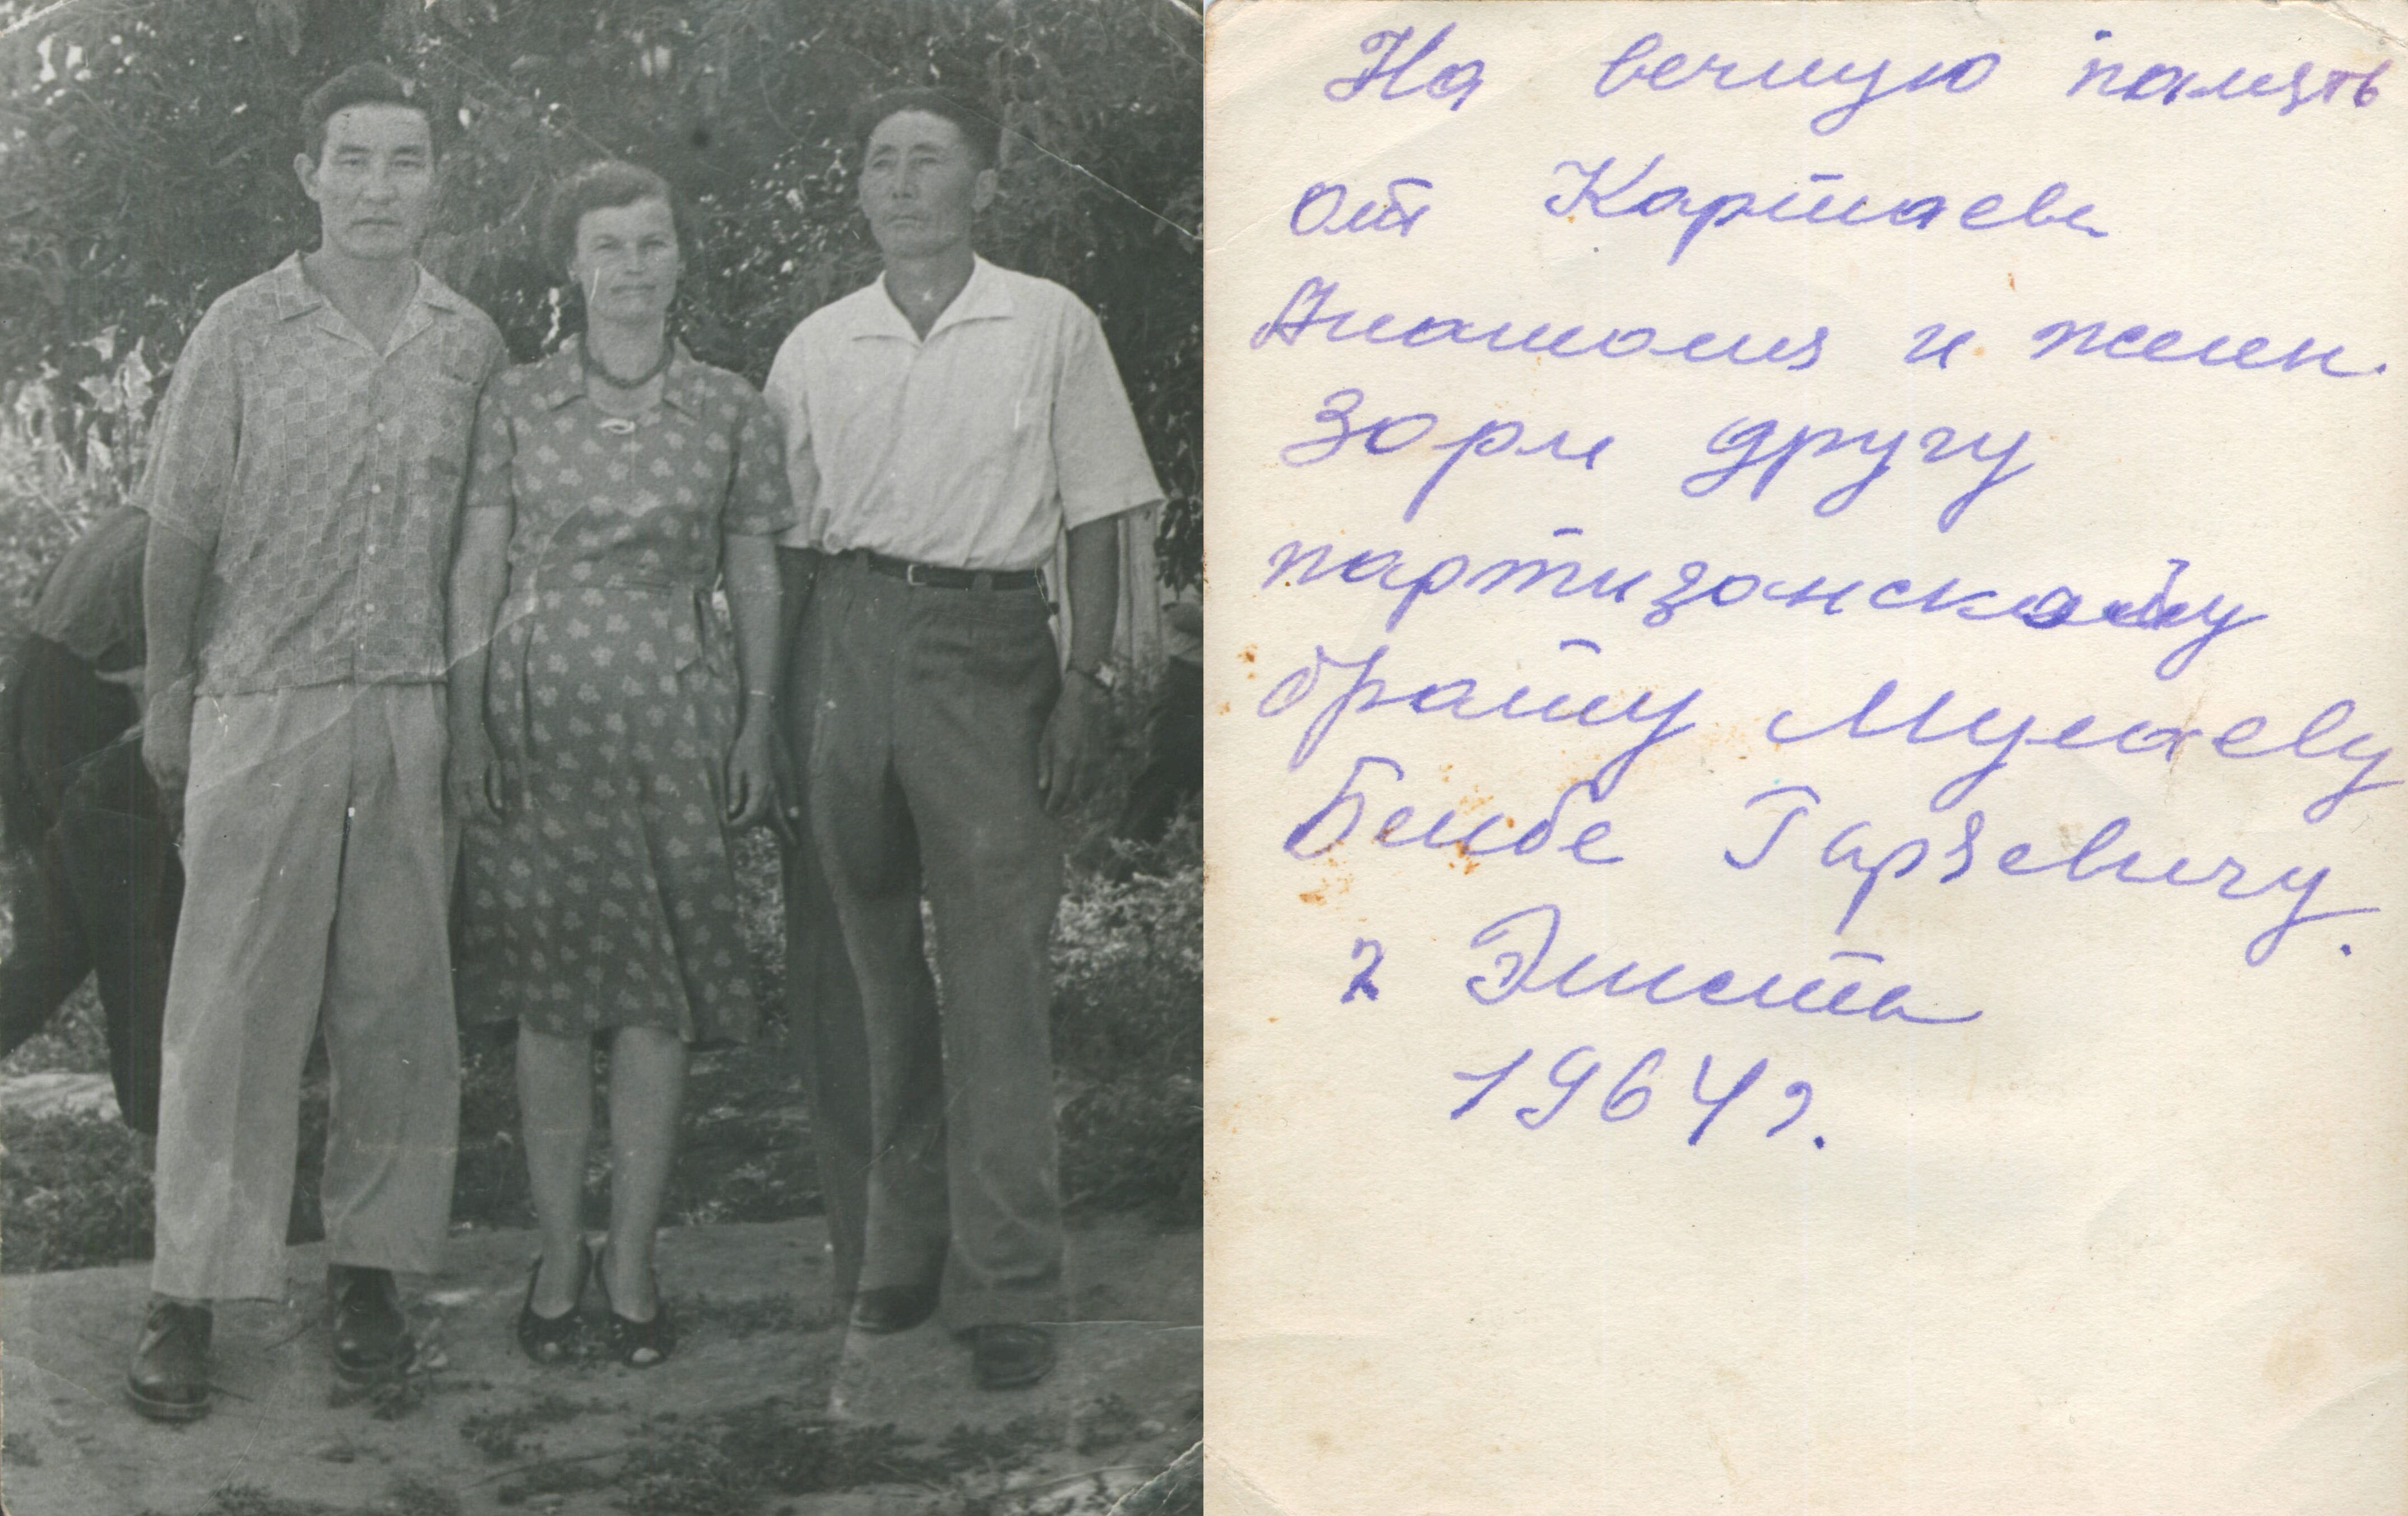 На вечную память
от Картаева
Анатолия и жен.
Зори другу
партизанскому
брату Мулаеву
Бембе Гаряевичу.
г Элиста
1964 г.